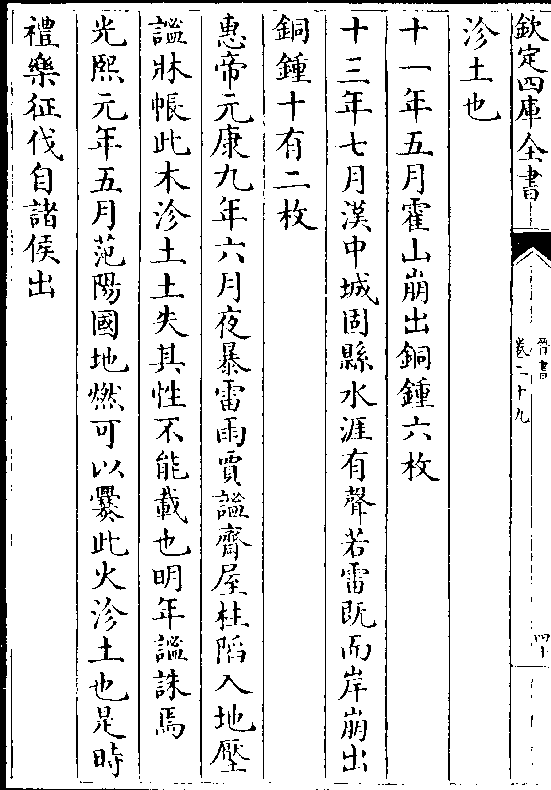 欽定四庫全書
晉書
卷二十九
四
沴土也
十一年五月霍山崩出銅鍾六枚
十三年七月漢中城固縣水涯有聲若雷既而岸崩出
銅鍾十有二枚
惠帝元康九年六月夜暴雷雨賈謐齊屋柱陷入地壓
謐牀帳此木沴土土失其性不能載也明年謐誅焉
光熙元年五月范陽國地燃可以爨此火沴土也是時
禮樂征伐自諸侯出